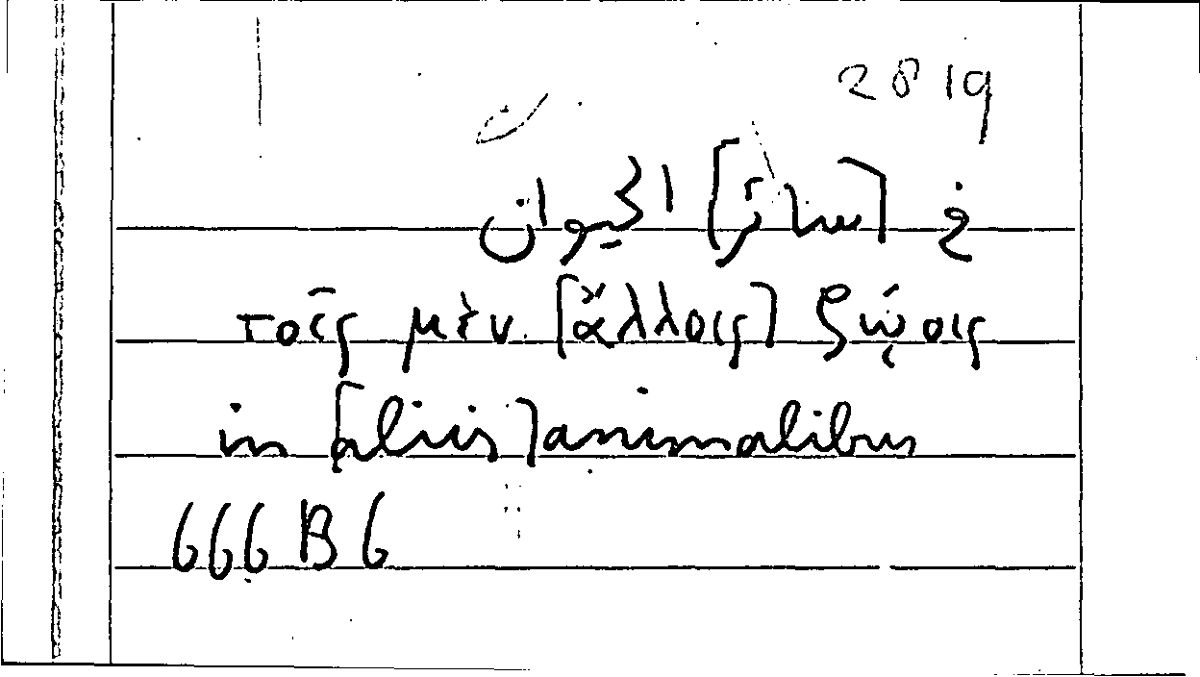 2819
في [سائر] الحيوان
τοῖς μὲν [ἄλλοις] ζῴοις
in [aliis] animalibus
666 B 6